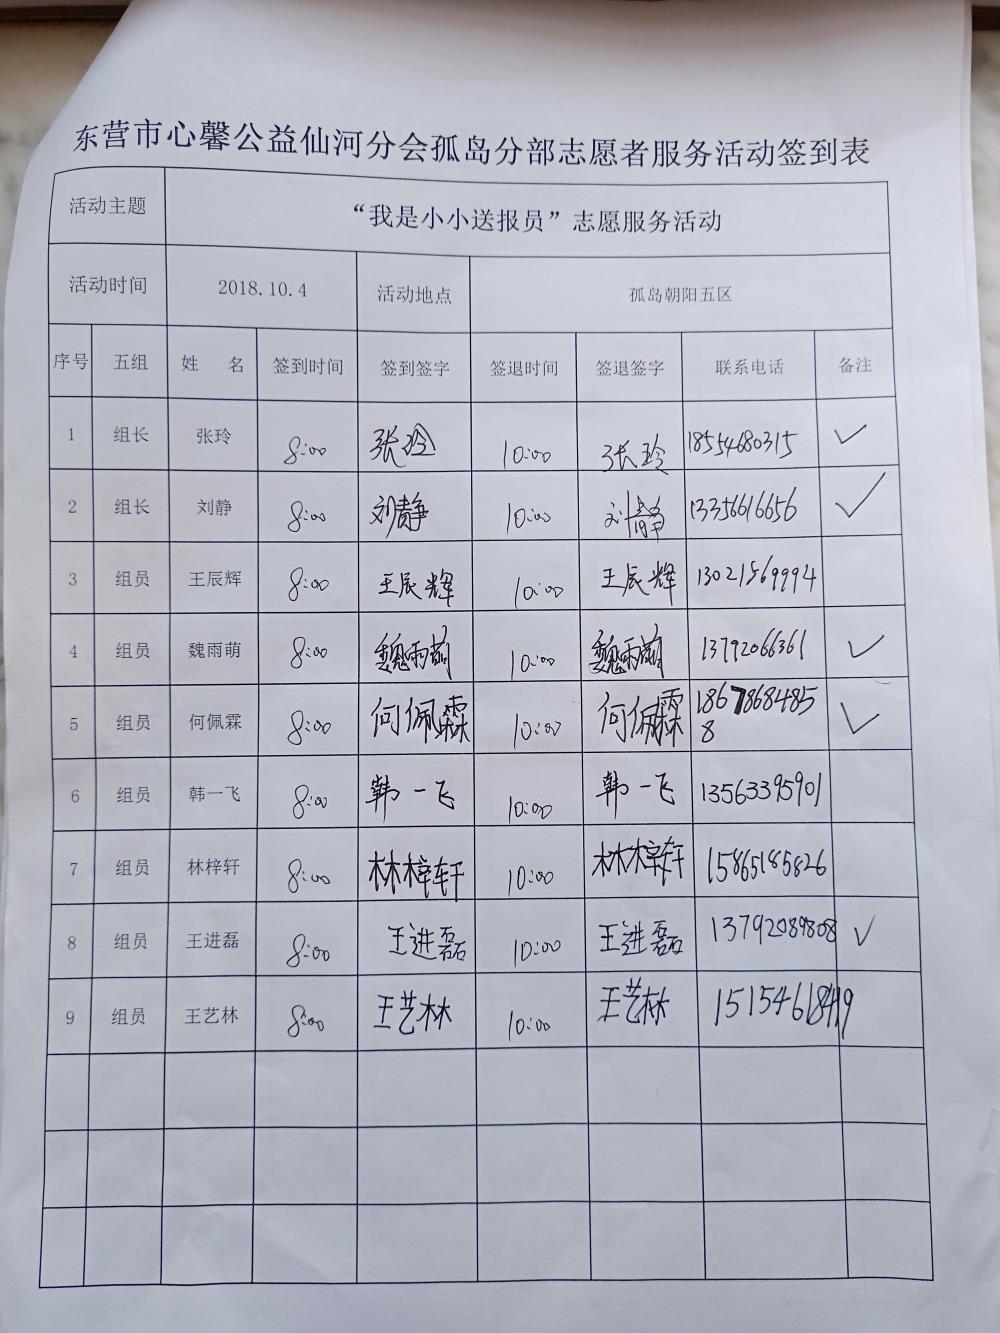 东营市心馨公益仙河分会孤岛分部志愿者服务活动签到表
活动主题 “我是小小送报员”志愿服务活动
活动时间 2018.10.4 活动地点 孤岛朝阳五区
序号 五组 姓 名 签到时间 签到签字 签退时间 签退签字 联系电话 备注
1 组长 张玲 8:00 张玲 10:00 张玲 18554680315 ✓
2 组长 刘静 8:00 刘静 10:00 刘静 13356616656 ✓
3 组员 王辰辉 8:00 王辰辉 10:00 王辰辉 13021569994
4 组员 魏雨萌 8:00 魏雨萌 10:00 魏雨萌 13792066361 ✓
5 组员 何佩霖 8:00 何佩霖 10:00 何佩霖 18678684858 ✓
6 组员 韩一飞 8:00 韩一飞 10:00 韩一飞 13563395901
7 组员 林梓轩 8:00 林梓轩 10:00 林梓轩 15865185826
8 组员 王进磊 8:00 王进磊 10:00 王进磊 13792089808 ✓
9 组员 王艺林 8:00 王艺林 10:00 王艺林